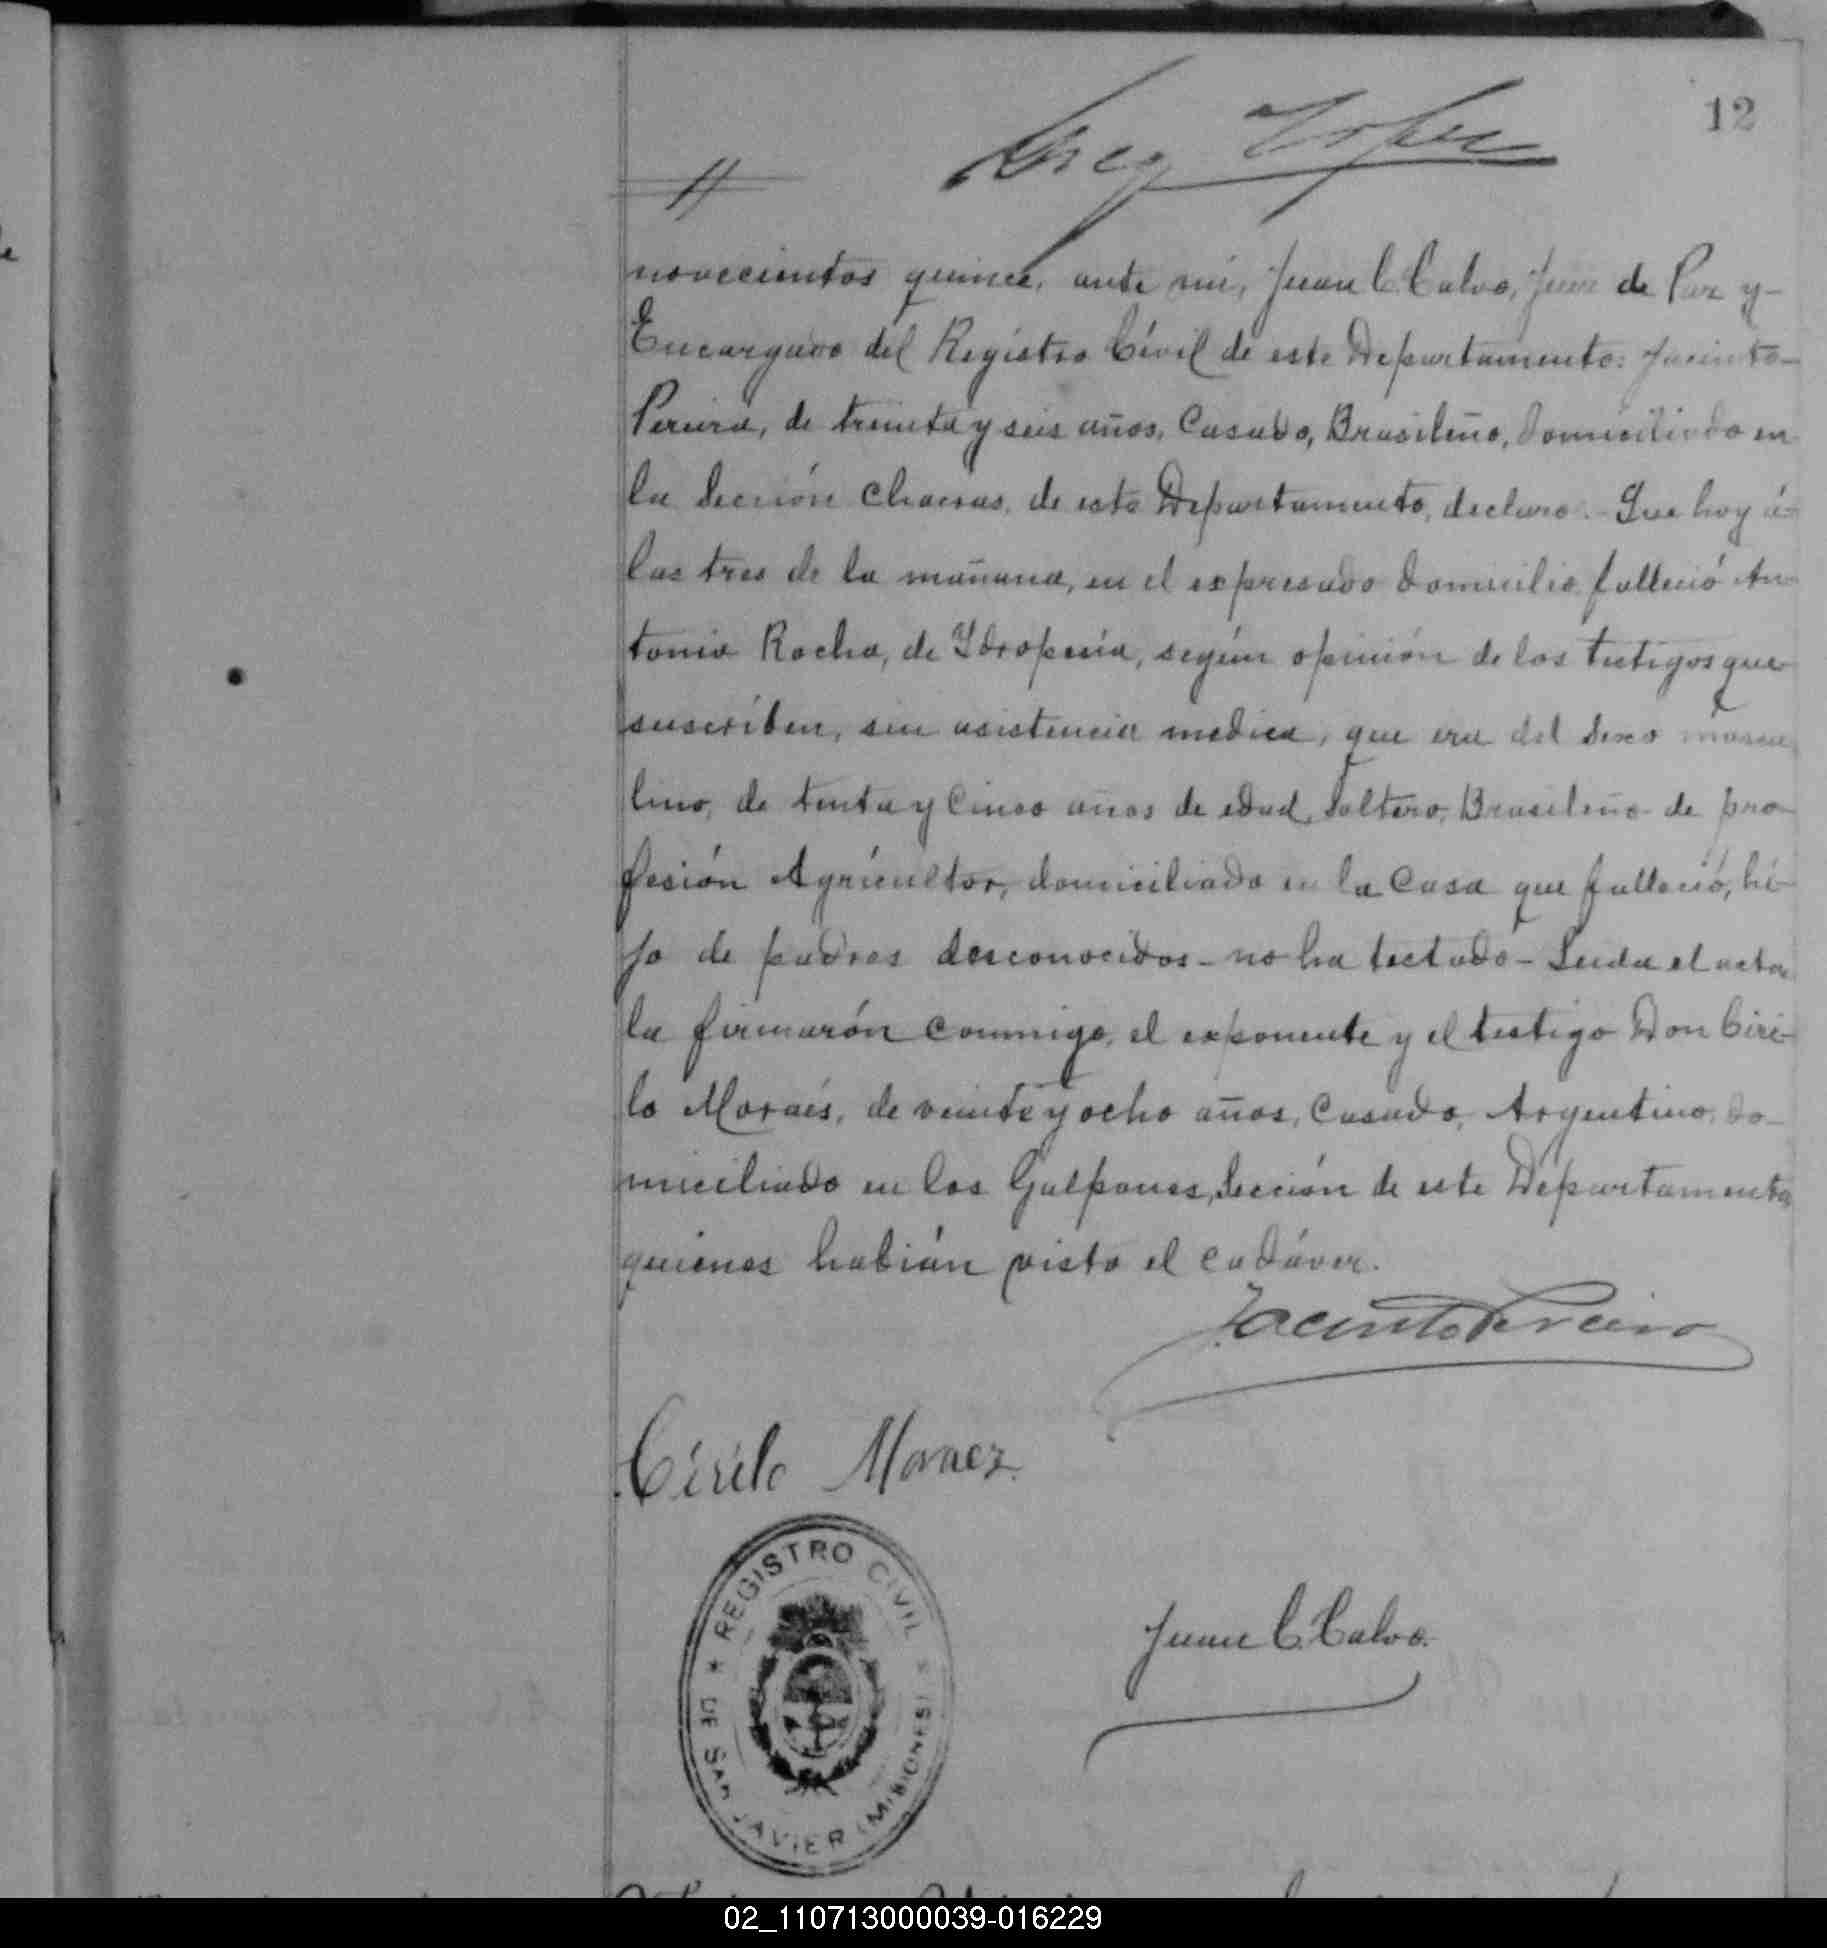 12
novecientos quince, ante mi, Juan C. Calvo, Juez de Paz y-
Encargado del Registro Civil de este Departamento: Jacinto-
Pereira, de treinta y seis años, Casado, Brasileño, domiciliado en
la Sección Chacras, de este Departamento, declaro.- Que hoy á-
las tres de la mañana, en el expresado domicilio falleció An-
tonio Rocha, de Ydropesía, según opinión de los testigos que
suscriben, sin asistencia medica, que era del Sexo mascu
lino, de tenta y Cinco años de edad, Soltero, Brasileño de pro-
fesión Agricultor, domiciliado en la Casa que falleció, hi-
jo de padres desconocidos - no ha testado - Leida el acta
la firmarón conmigo, el exponente y el testigo Don Ciri-
lo Moraés, de veinte y ocho años, Casado, Argentino, do-
miciliado en los Galpones, Sección de este Departamento,
quienes habían visto el cadáver.
Jacinto Pereira
Cirilo Moraez.
REGISTRO CIVIL
DE SAN JAVIER (MISIONES)
Juan C. Calvo.
02_110713000039-016229